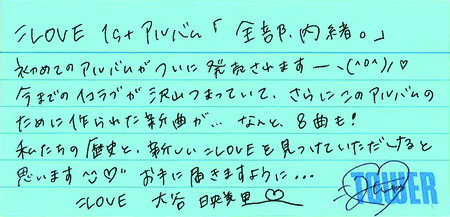 =LOVE 1stアルバム「全部、内緒。」
初めてのアルバムがついに発売されますーヽ(^o^)ノ♡
今までのイコラブが沢山つまっていて、さらにこのアルバムの
ために作られた新曲が… なんと、8曲も!
私たちの歴史と、新しい=LOVEを見つけていただけると
思います^^♡ お手に届きますように…
=LOVE 大谷映美里♡
TOWER